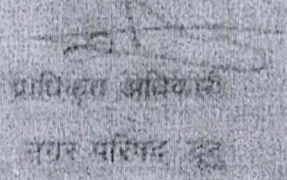 प्राधिकृत अधिकारी
नगर परिषद दूदू